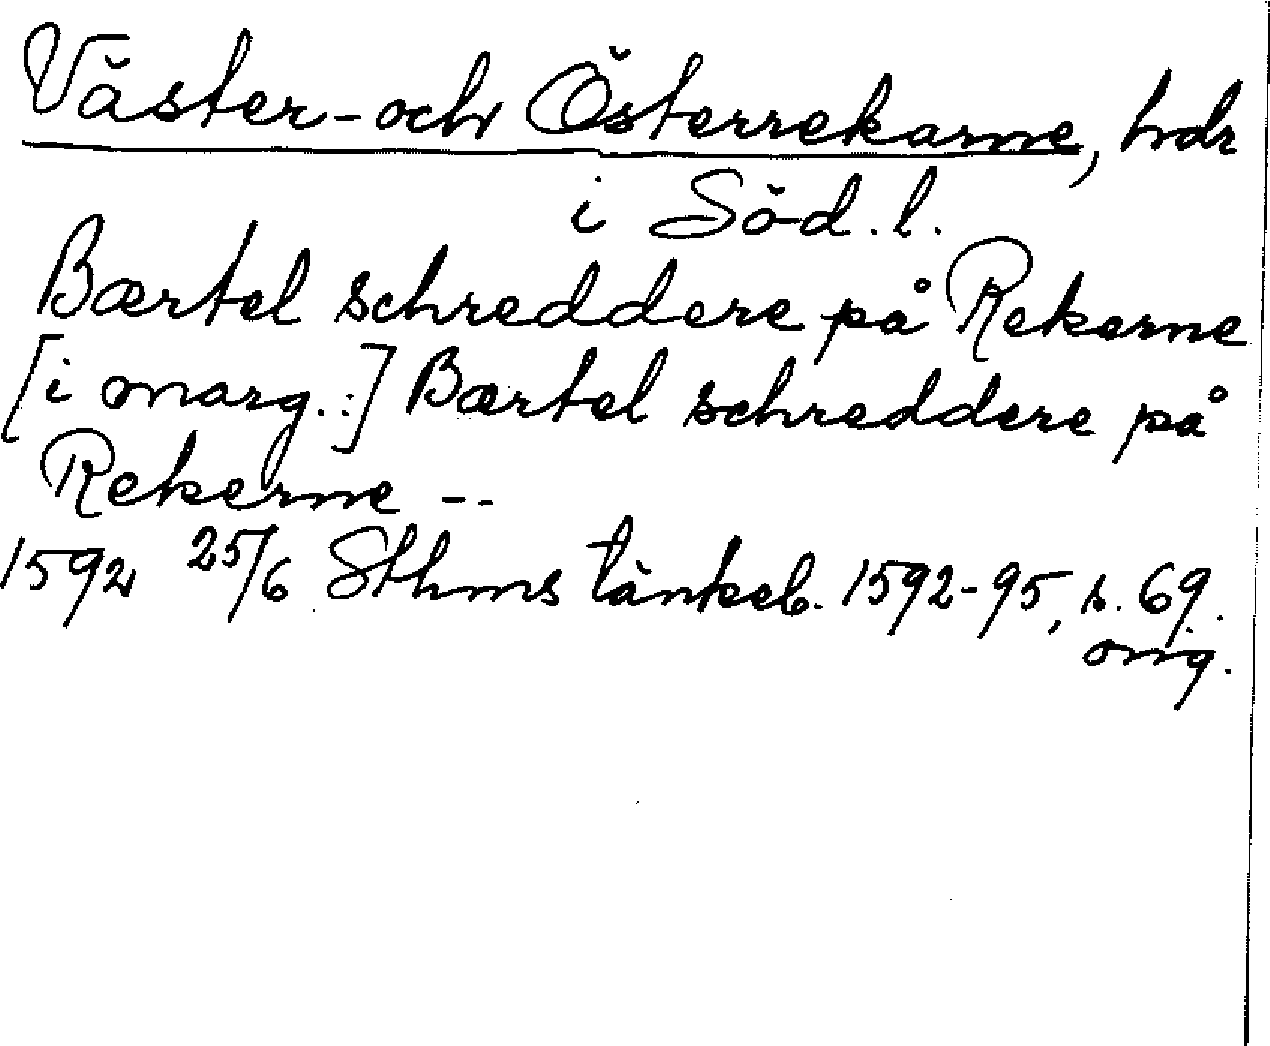 Väster- och Österrekarne, hdr
i Söd. l.
Bærtel schreddere på Rekerne
[i marg.:] Bærtel schreddere på
Rekerne --
1592 25/6 Sthms tänkeb. 1592-95, s. 69.
orig.